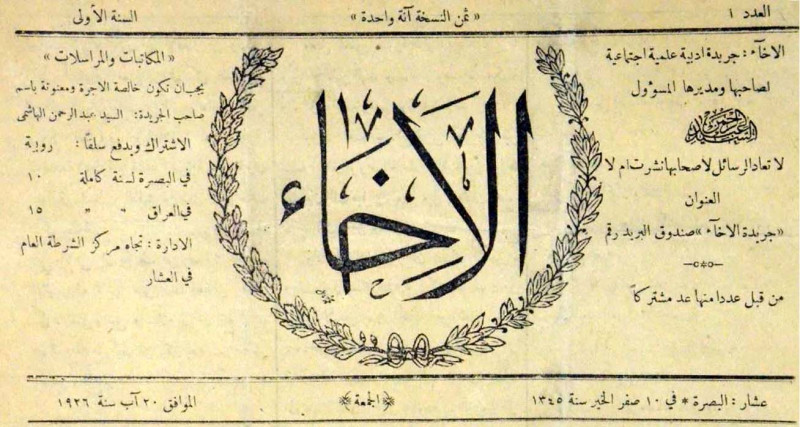 العدد ١
« ثمن النسخة آنة واحدة »
السنة الأولى
الاخآء : جريدة ادبية علمية اجتماعية
لصاحبها ومديرها المسؤول
السيد عبد الرحمن
لا تعاد الرسائل لاصحابها نشرت ام لا
العنوان
«جريدة الاخآء» صندوق البريد رقم
من قبل عددا منها عد مشتركاً
الاخاء
« المكاتبات والمراسلات »
يجب ان تكون خالصة الاجرة ومعنونة باسم
صاحب الجريدة : السيد عبد الرحمن الهاشمي
الاشتراك ويدفع سلفاً : روبية
في البصرة لسنة كاملة ١٠
في العراق " " ١٥
الادارة : تجاه مركز الشرطة العام
في العشار
عشار : البصرة * في ١٠ صفر الخير سنة ١٣٤٥
﴿ الجمعة ﴾
الموافق ٢٠ آب سنة ١٩٢٦